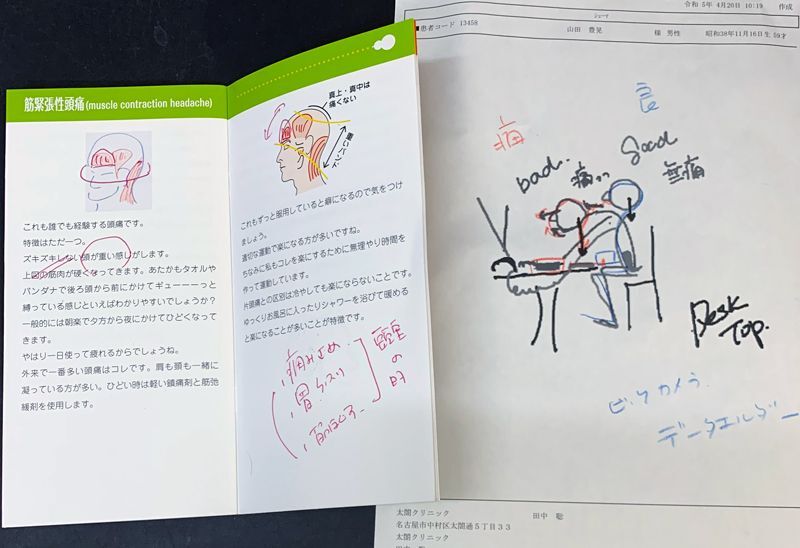 筋緊張性頭痛(muscle contraction headache)
これも誰でも経験する頭痛です。
特徴はただ一つ。
ズキズキしない頭が重い感じがします。
上図の筋肉が硬くなってきます。あたかもタオルや
バンダナで後ろ頭から前にかけてギューーーっと
縛っている感じといえばわかりやすいでしょうか？
一般的には朝楽で夕方から夜にかけてひどくなって
きます。
やはり一日使って疲れるからでしょうね。
外来で一番多い頭痛はコレです。肩も頸も一緒に
凝っている方が多い。ひどい時は軽い鎮痛剤と筋弛
緩剤を使用します。
真上・真中は
痛くない
重いバンド
これもずっと服用していると癖になるので気をつけ
ましょう。
適切な運動で楽になる方が多いですね。
ちなみに私もコレを楽にするために無理やり時間を
作って運動しています。
片頭痛との区別は冷やしても楽にならないことです。
ゆっくりお風呂に入ったりシャワーを浴びて暖める
と楽になることが多いことが特徴です。
痛み止め
胃グスリ
頭重
の時
令和 5年 4月20日 10:19 作成
■患者コード 13458
山田 豊晃
様 男性
昭和38年11月16日生 59才
痛
良
bad.
痛い
Good
無痛
Desk
Top.
ビックカメラ
データホルダー
太閤クリニック
田中 聡
名古屋市中村区太閤通5丁目33
太閤クリニック